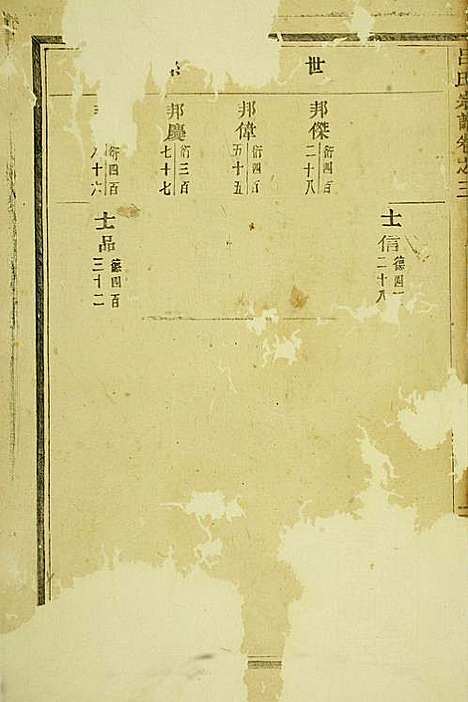 呂氏宗譜卷之三
世
邦傑
衍四百
二十八
邦偉
衍四百
五十五
邦慶
衍三百
七十七
衍四百
八十六
士信
德四
二十八
士品
德四百
三十二